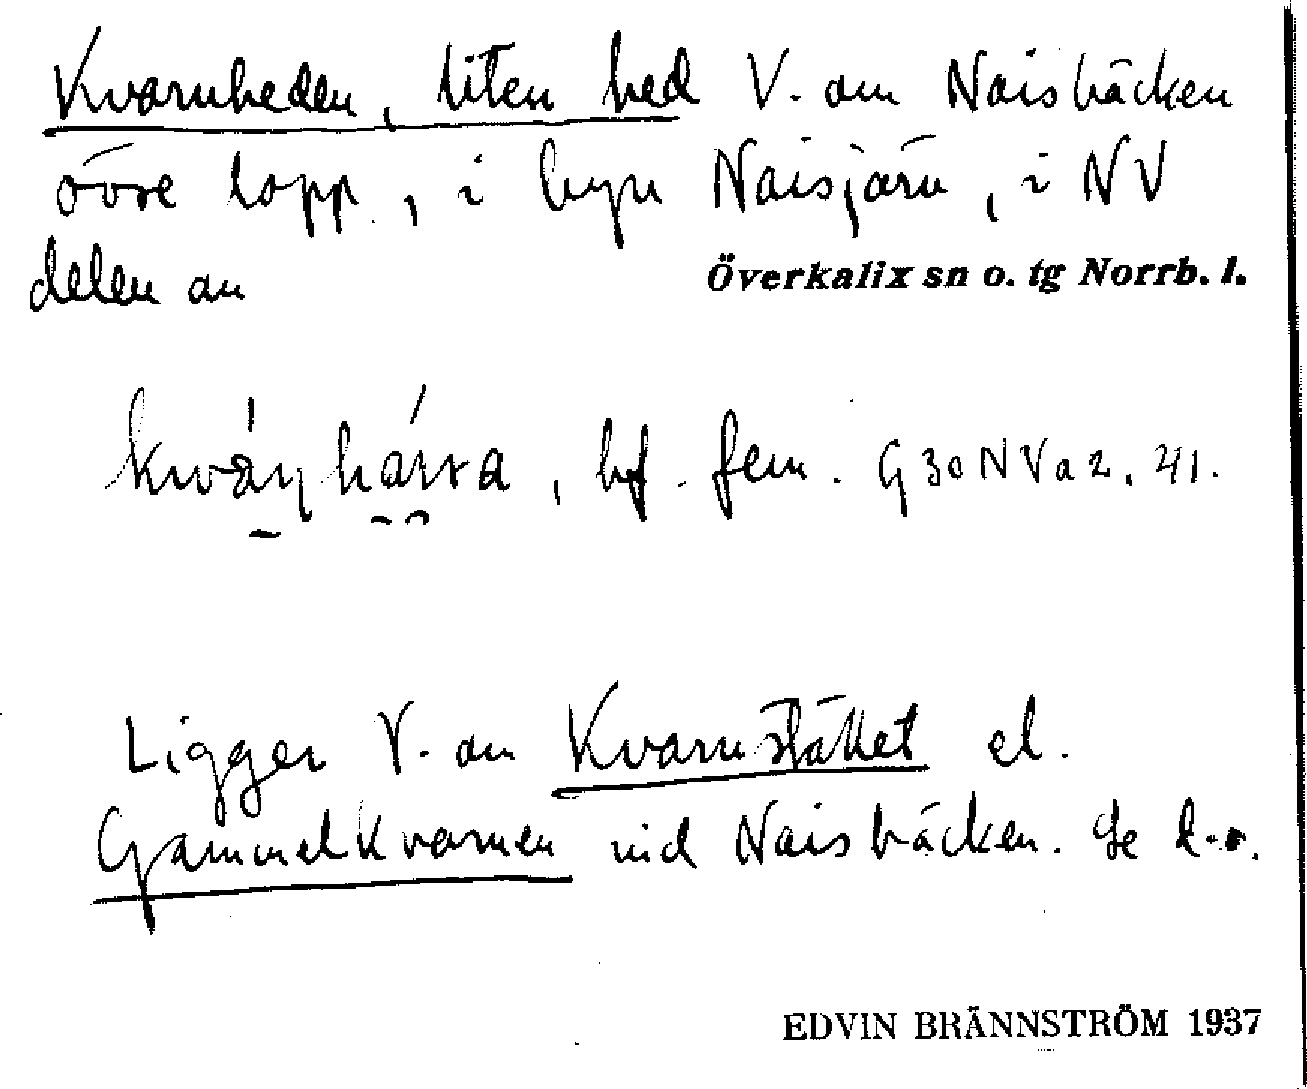 Kvarnheden, liten hed V. om Naisbäcken
övre lopp, i byn Naisjärv, i NV
delen av
Överkalix sn o. tg Norrb. l.
bf. fem. G30NVa2, 41.
Ligger V. om Kvarnstället el.
Gammelkvarnen vid Naisbäcken. Se d.o.
EDVIN BRÄNNSTRÖM 1937